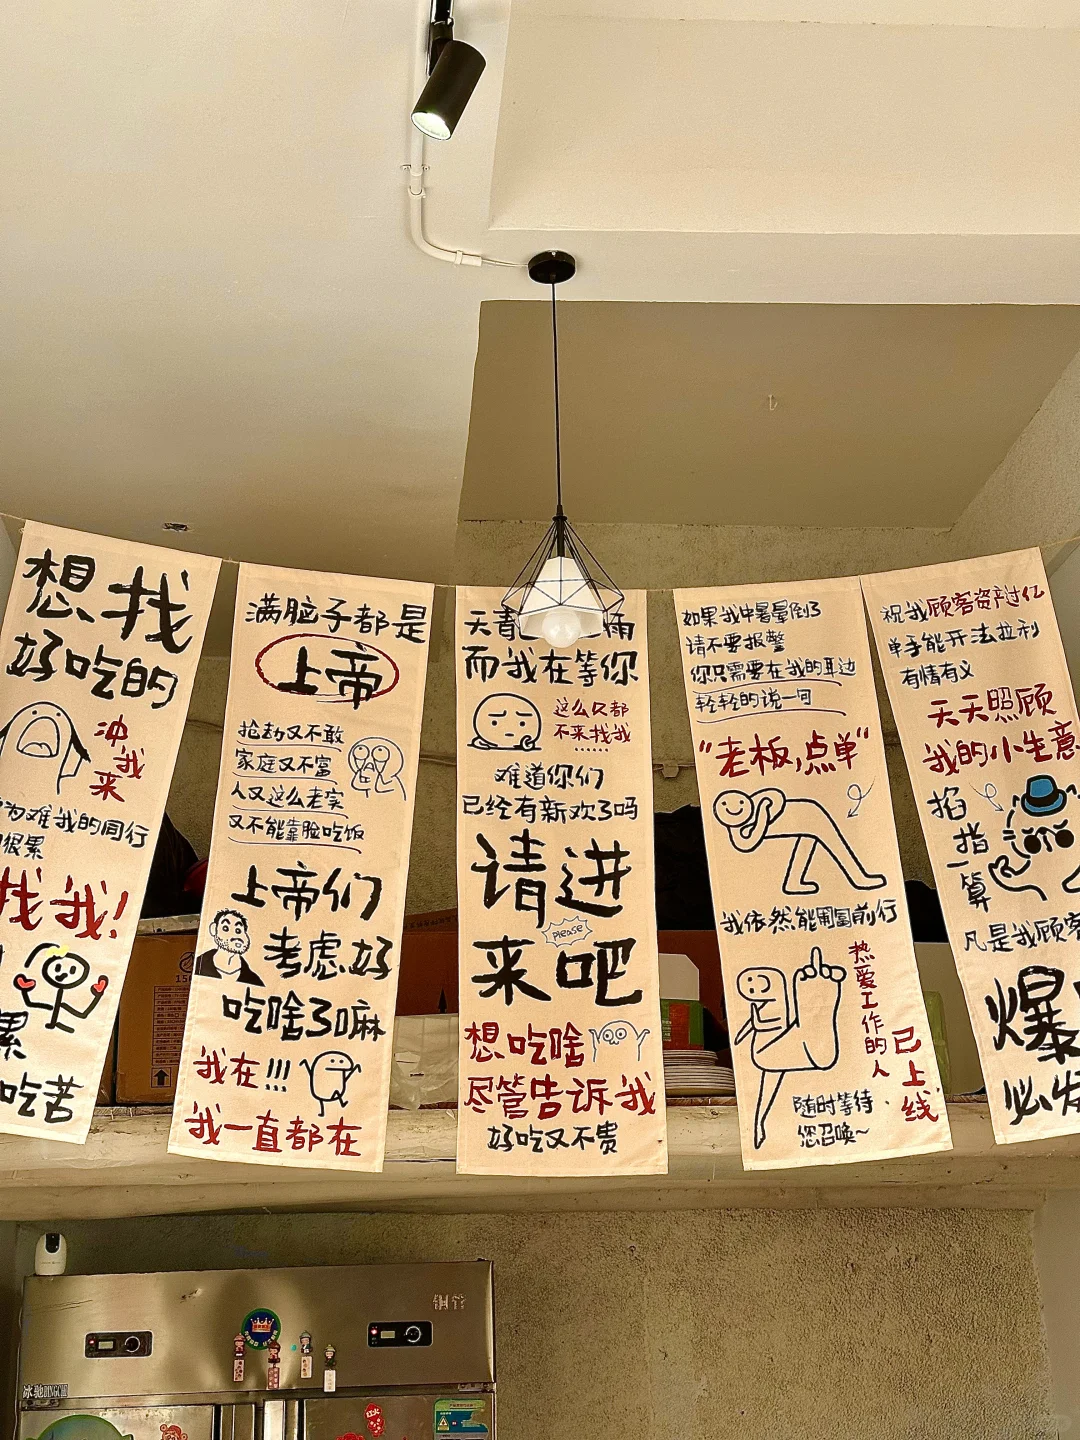 想找
好吃的
冲
我
来
为难我的同行
很累
找我!
累
吃苦
满脑子都是
上帝
抢劫又不敢
家庭又不富
人又这么老实
又不能靠脸吃饭
上帝们
考虑好
吃啥了嘛
我在!!!
我一直都在
天青
雨
而我在等你
这么久都
不来找我
......
难道你们
已经有新欢了吗
请进
please
来吧
想吃啥
尽管告诉我
好吃又不贵
如果我中暑晕倒了
请不要报警
你只需要在我的耳边
轻轻的说一句
“老板,点单”
我依然能匍匐前行
热爱工作的人
已上线
随时等待
您召唤~
祝我顾客资产过亿
单手能开法拉利
有情有义
天天照顾
我的小生意
掐
指
一
算
凡是我顾客
爆
必发
冰驰